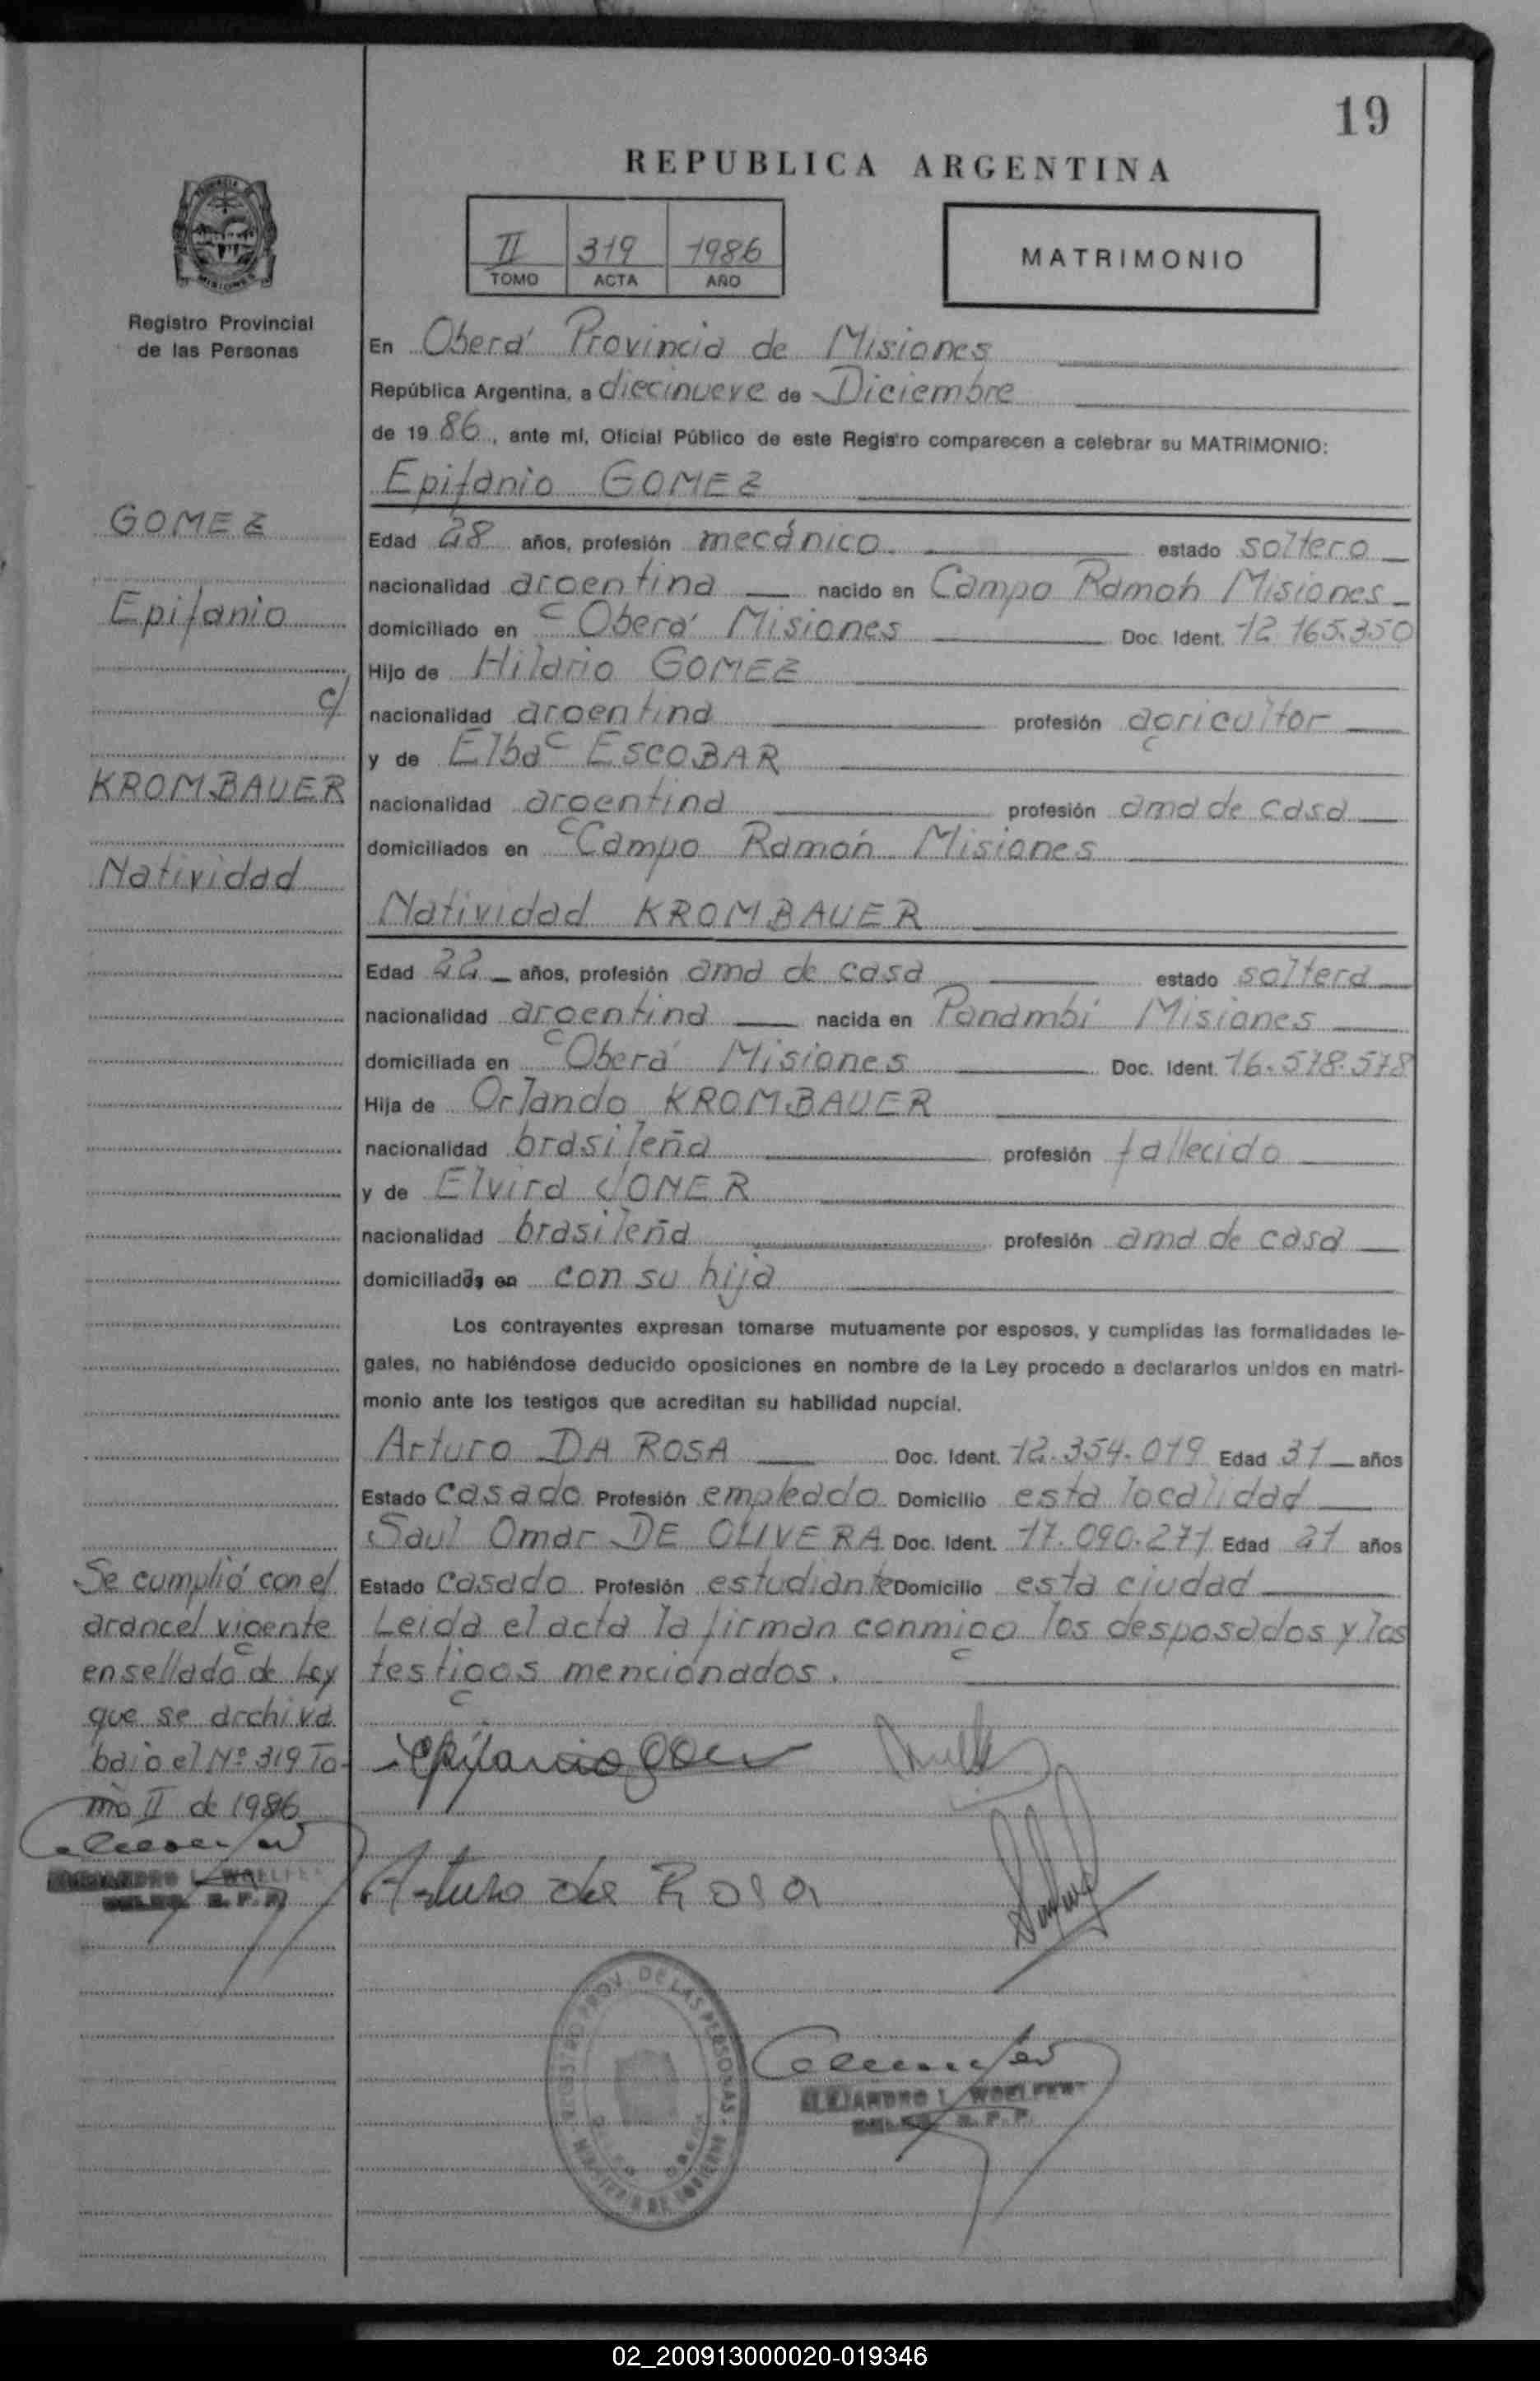 19
REPUBLICA ARGENTINA
II 319 1986
TOMO ACTA AÑO
MATRIMONIO
Registro Provincial
de las Personas
En Oberá Provincia de Misiones
República Argentina, a diecinueve de Diciembre
de 1986, ante mí, Oficial Público de este Registro comparecen a celebrar su MATRIMONIO:
Epifanio GOMEZ
GOMEZ
Epifanio
c/
KROMBAUER
Natividad
Edad 28 años, profesión mecánico estado soltero
nacionalidad argentina nacido en Campo Ramón Misiones
domiciliado en Oberá Misiones Doc. Ident. 12.165.350
Hijo de Hilario GOMEZ
nacionalidad argentina profesión agricultor
y de Elba ESCOBAR
nacionalidad argentina profesión ama de casa
domiciliados en Campo Ramón Misiones
Natividad KROMBAUER
Edad 22 años, profesión ama de casa estado soltera
nacionalidad argentina nacida en Panambí Misiones
domiciliada en Oberá Misiones Doc. Ident. 16.578.578
Hija de Orlando KROMBAUER
nacionalidad brasileña profesión fallecido
y de Elvira JONER
nacionalidad brasileña profesión ama de casa
domiciliados en con su hija
Los contrayentes expresan tomarse mutuamente por esposos, y cumplidas las formalidades le-
gales, no habiéndose deducido oposiciones en nombre de la Ley procedo a declararlos unidos en matri-
monio ante los testigos que acreditan su habilidad nupcial.
Arturo DA ROSA Doc. Ident. 12.354.019 Edad 31 años
Estado casado Profesión empleado Domicilio esta localidad
Saul Omar DE OLIVERA Doc. Ident. 17.090.271 Edad 21 años
Estado casado Profesión estudiante Domicilio esta ciudad
Leida el acta la firman conmigo los desposados y los
testigos mencionados.
Se cumplió con el
arancel vigente
en sellado de Ley
que se archiva
bajo el Nº 319 To-
mo II de 1986
Arturo da Rosa
REGISTRO PROV. DE LAS PERSONAS
MINISTERIO DE GOBIERNO
ALEJANDRO L. WOELFERT
02_200913000020-019346